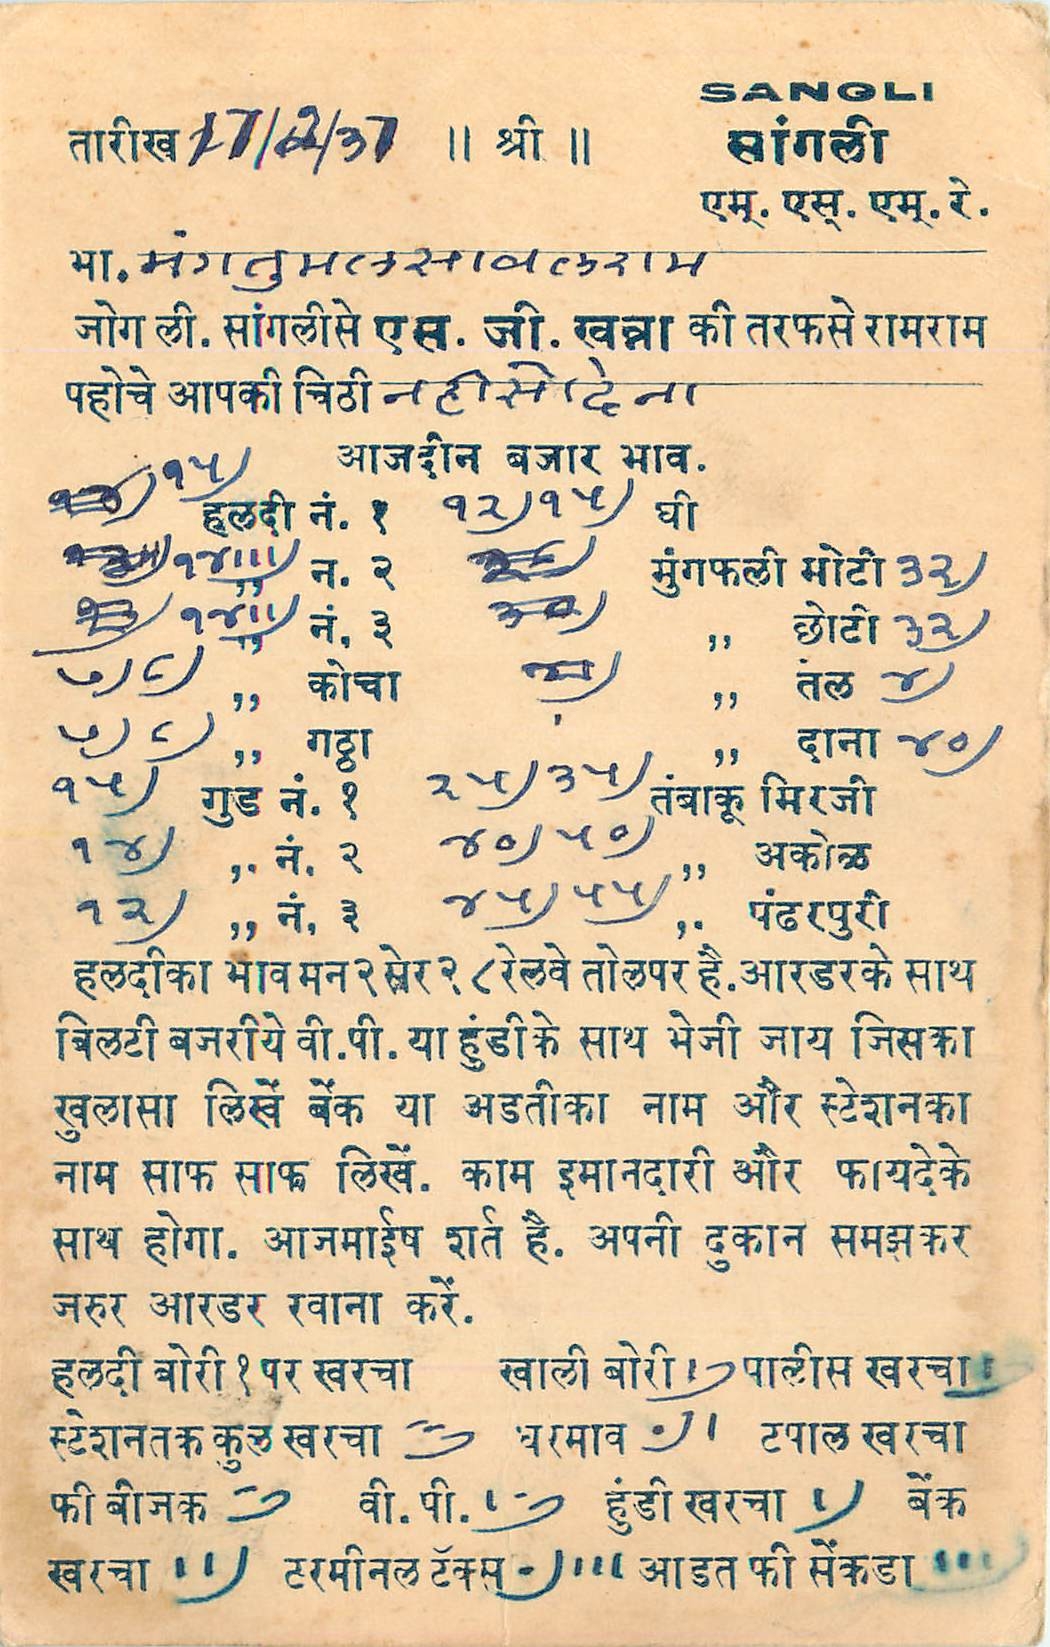 SANGLI
तारीख 17/2/37 ॥ श्री ॥ सांगली
एम्. एस्. एम्. रे.
भा. मंगतुमल सावलराम
जोग ली. सांगलीसे एस. जी. खन्ना की तरफसे रामराम
पहोचे आपकी चिठी नही सो देना
आजदीन बजार भाव.
१५) हलदी नं. १ १२) १५) घी
१४॥।) ,, न. २ मुंगफली मोटी ३२)
१४॥) ,, नं. ३ ,, छोटी ३२)
७) ८) ,, कोचा ,, तंल ४)
७) ८) ,, गठ्ठा ,, दाना ४०)
१५) गुड नं. १ २५) ३५) तंबाकू मिरजी
१४) ,. नं. २ ४०) ५०) ,, अकोळ
१२) ,, नं. ३ ४५) ५५) ,. पंढरपुरी
हलदीका भाव मन २ सेर २८ रेलवे तोलपर है. आरडरके साथ
बिलटी बजरीये वी.पी. या हुंडीके साथ भेजी जाय जिसका
खुलासा लिखें बेंक या अडतीका नाम और स्टेशनका
नाम साफ साफ लिखें. काम इमानदारी और फायदेके
साथ होगा. आजमाईष शर्त है. अपनी दुकान समझकर
जरुर आरडर रवाना करें.
हलदी बोरी १ पर खरचा खाली बोरी पालीस खरचा
स्टेशनतक कुल खरचा धरमाव टपाल खरचा
फी बीजक वी. पी. हुंडी खरचा ।) बेंक
खरचा ॥।) टरमीनल टॅक्स -)॥। आडत फी सेंकडा ॥।